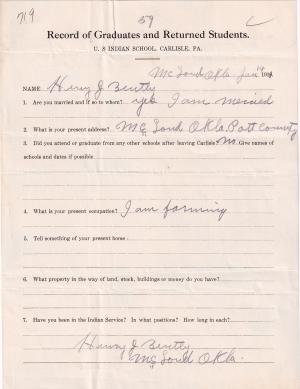 719
59
Record of Graduates and Returned Students.
U. S INDIAN SCHOOL, CARLISLE, PA.
Mc Loud Okla Jan 14 1911
NAME Henry J Beutly
1. Are you married and if so to whom? yes I am merried
2. What is your present address? Mc Loud Okla. Pott County
3. Did you attend or graduate from any other schools after leaving Carlisle No. Give names of
schools and dates if possible
4. What is your present occupation? I am forming
5. Tell something of your present home
6. What property in the way of land, stock, buildings or money do you have?
7. Have you been in the Indian Service? In what positions? How long in each?
Henry J Beutly
Mc Loud Okla.